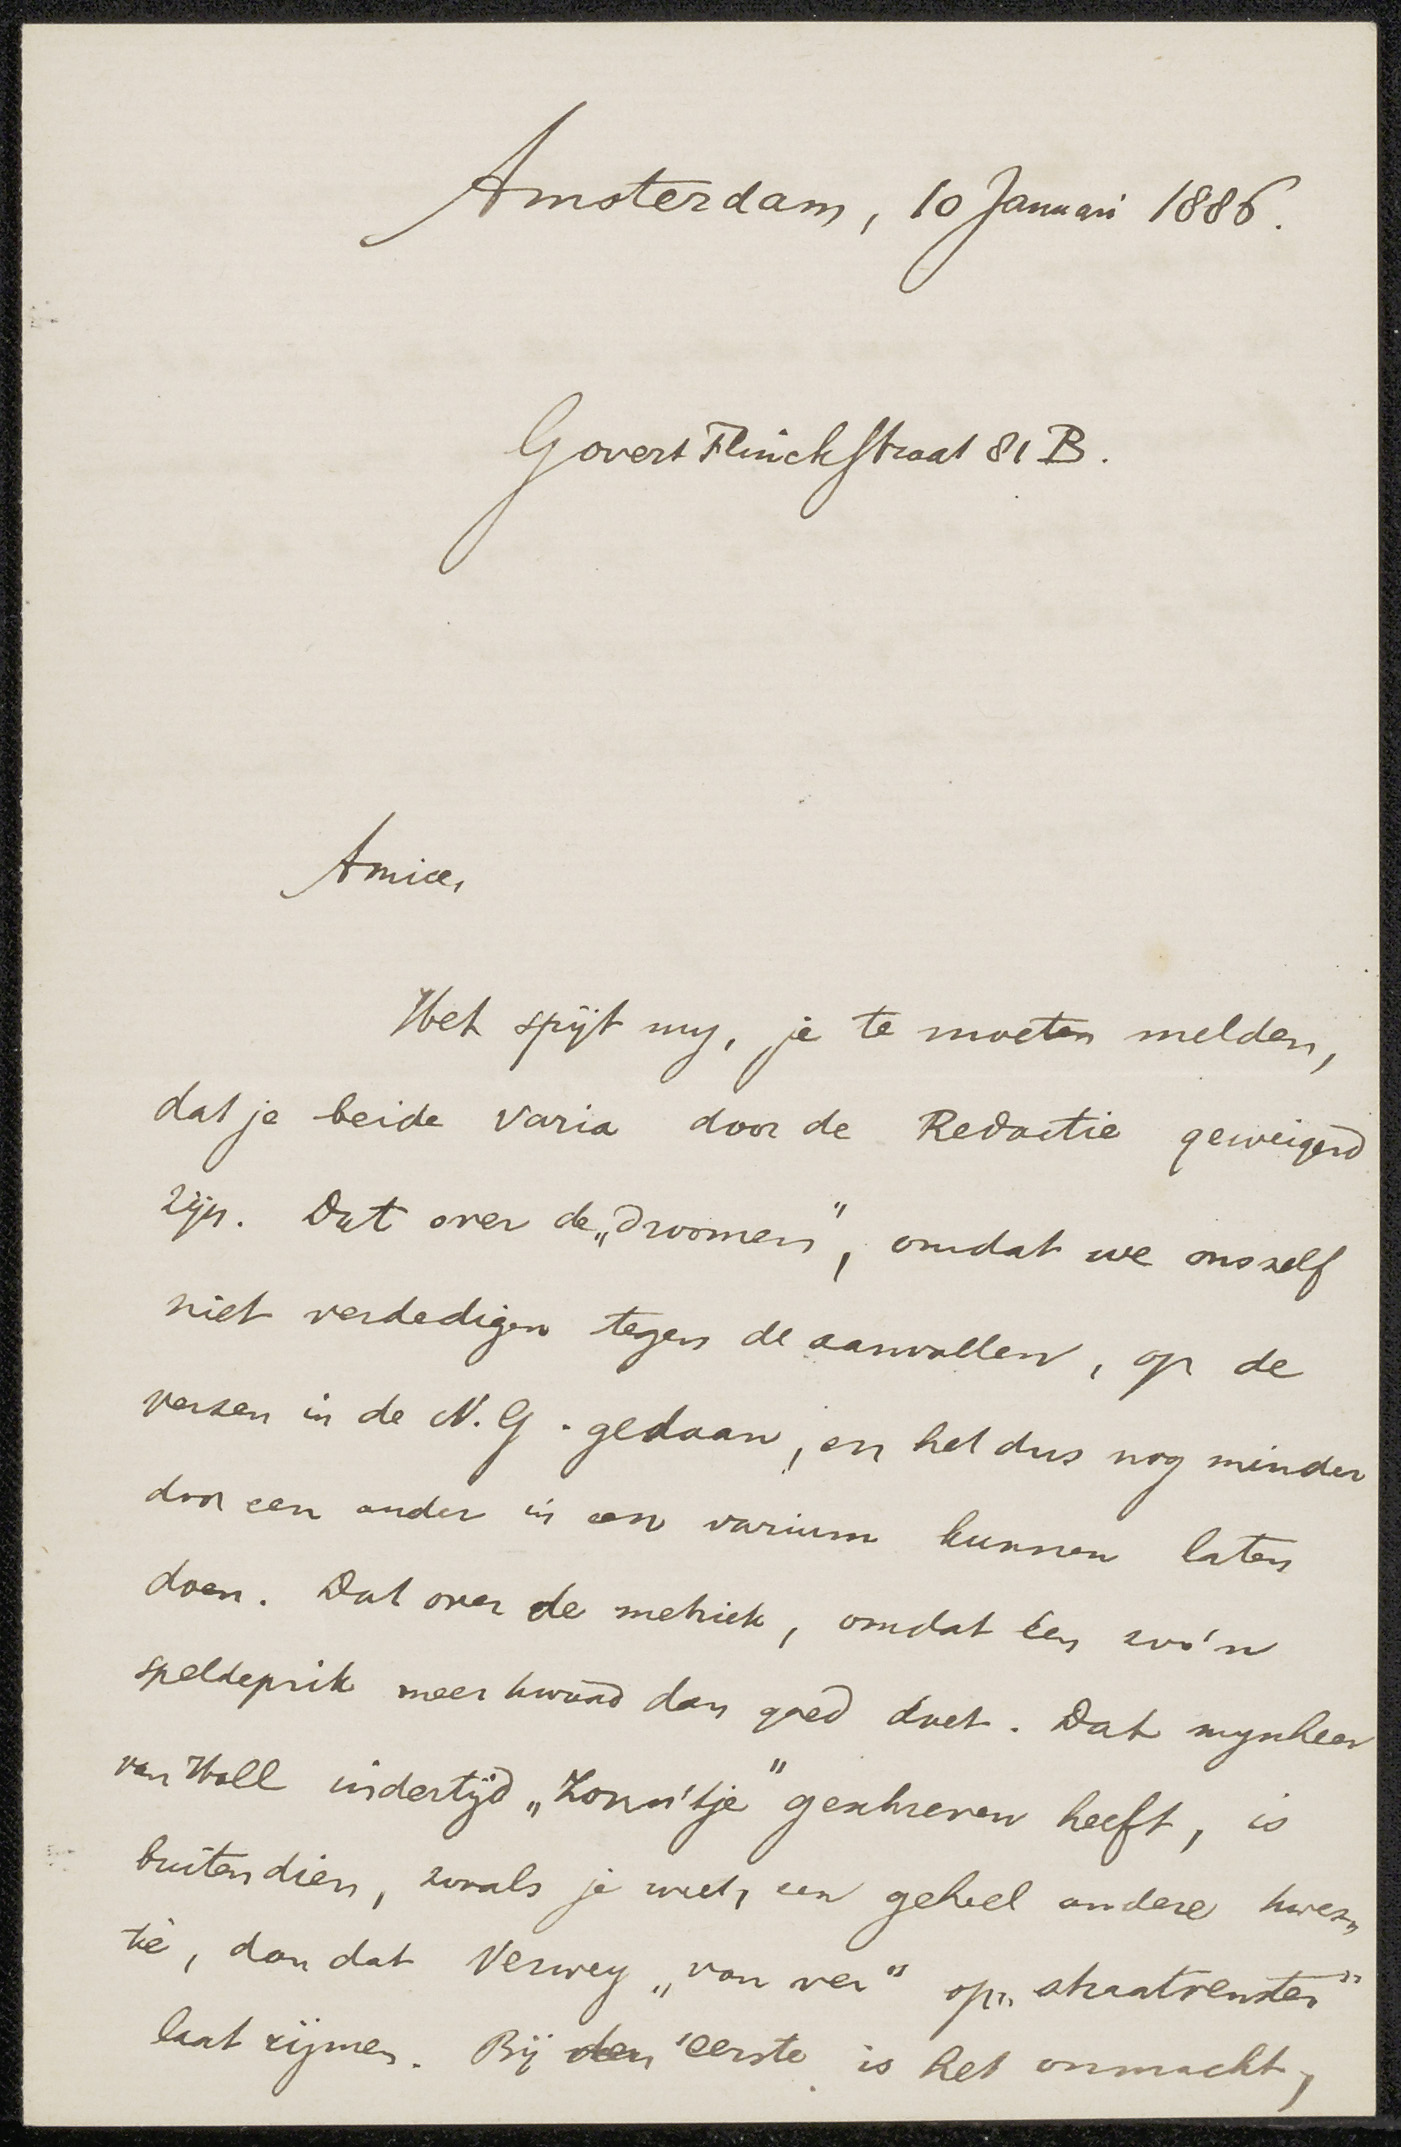 Amsterdam, 10 Januari 1886.
Govert Flinckstraat 81 B.
Amice,
Het spijt my, je te moeten melden,
dat je beide varia door de Redactie geweigerd
zijn. Dat over de „Droomen", omdat we onszelf
niet verdedigen tegen de aanvallen, op de
verzen in de N.G. gedaan, en het dus nog minder
door een ander in een varium kunnen laten
doen. Dat over de metriek, omdat één zoo'n
speldeprik meer kwaad dan goed doet. Dat mynheer
van Hall indertijd „Zonn'tje" geschreven heeft, is
buitendien, zooals je weet, een geheel andere kwes„
tie, dan dat Verwey „van ver" op „straatvenster"
laat rijmen. Bij den eerste is het onmacht,